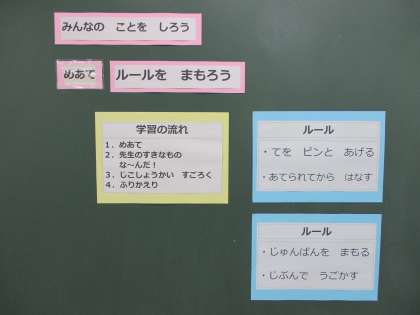 みんなの　ことを　しろう
めあて
ルールを　まもろう
学習の流れ
１．めあて
２．先生のすきなもの
な～んだ！
３．じこしょうかい　すごろく
４．ふりかえり
ルール
・てを　ピンと　あげる
・あてられてから　はなす
ルール
・じゅんばんを　まもる
・じぶんで　うごかす